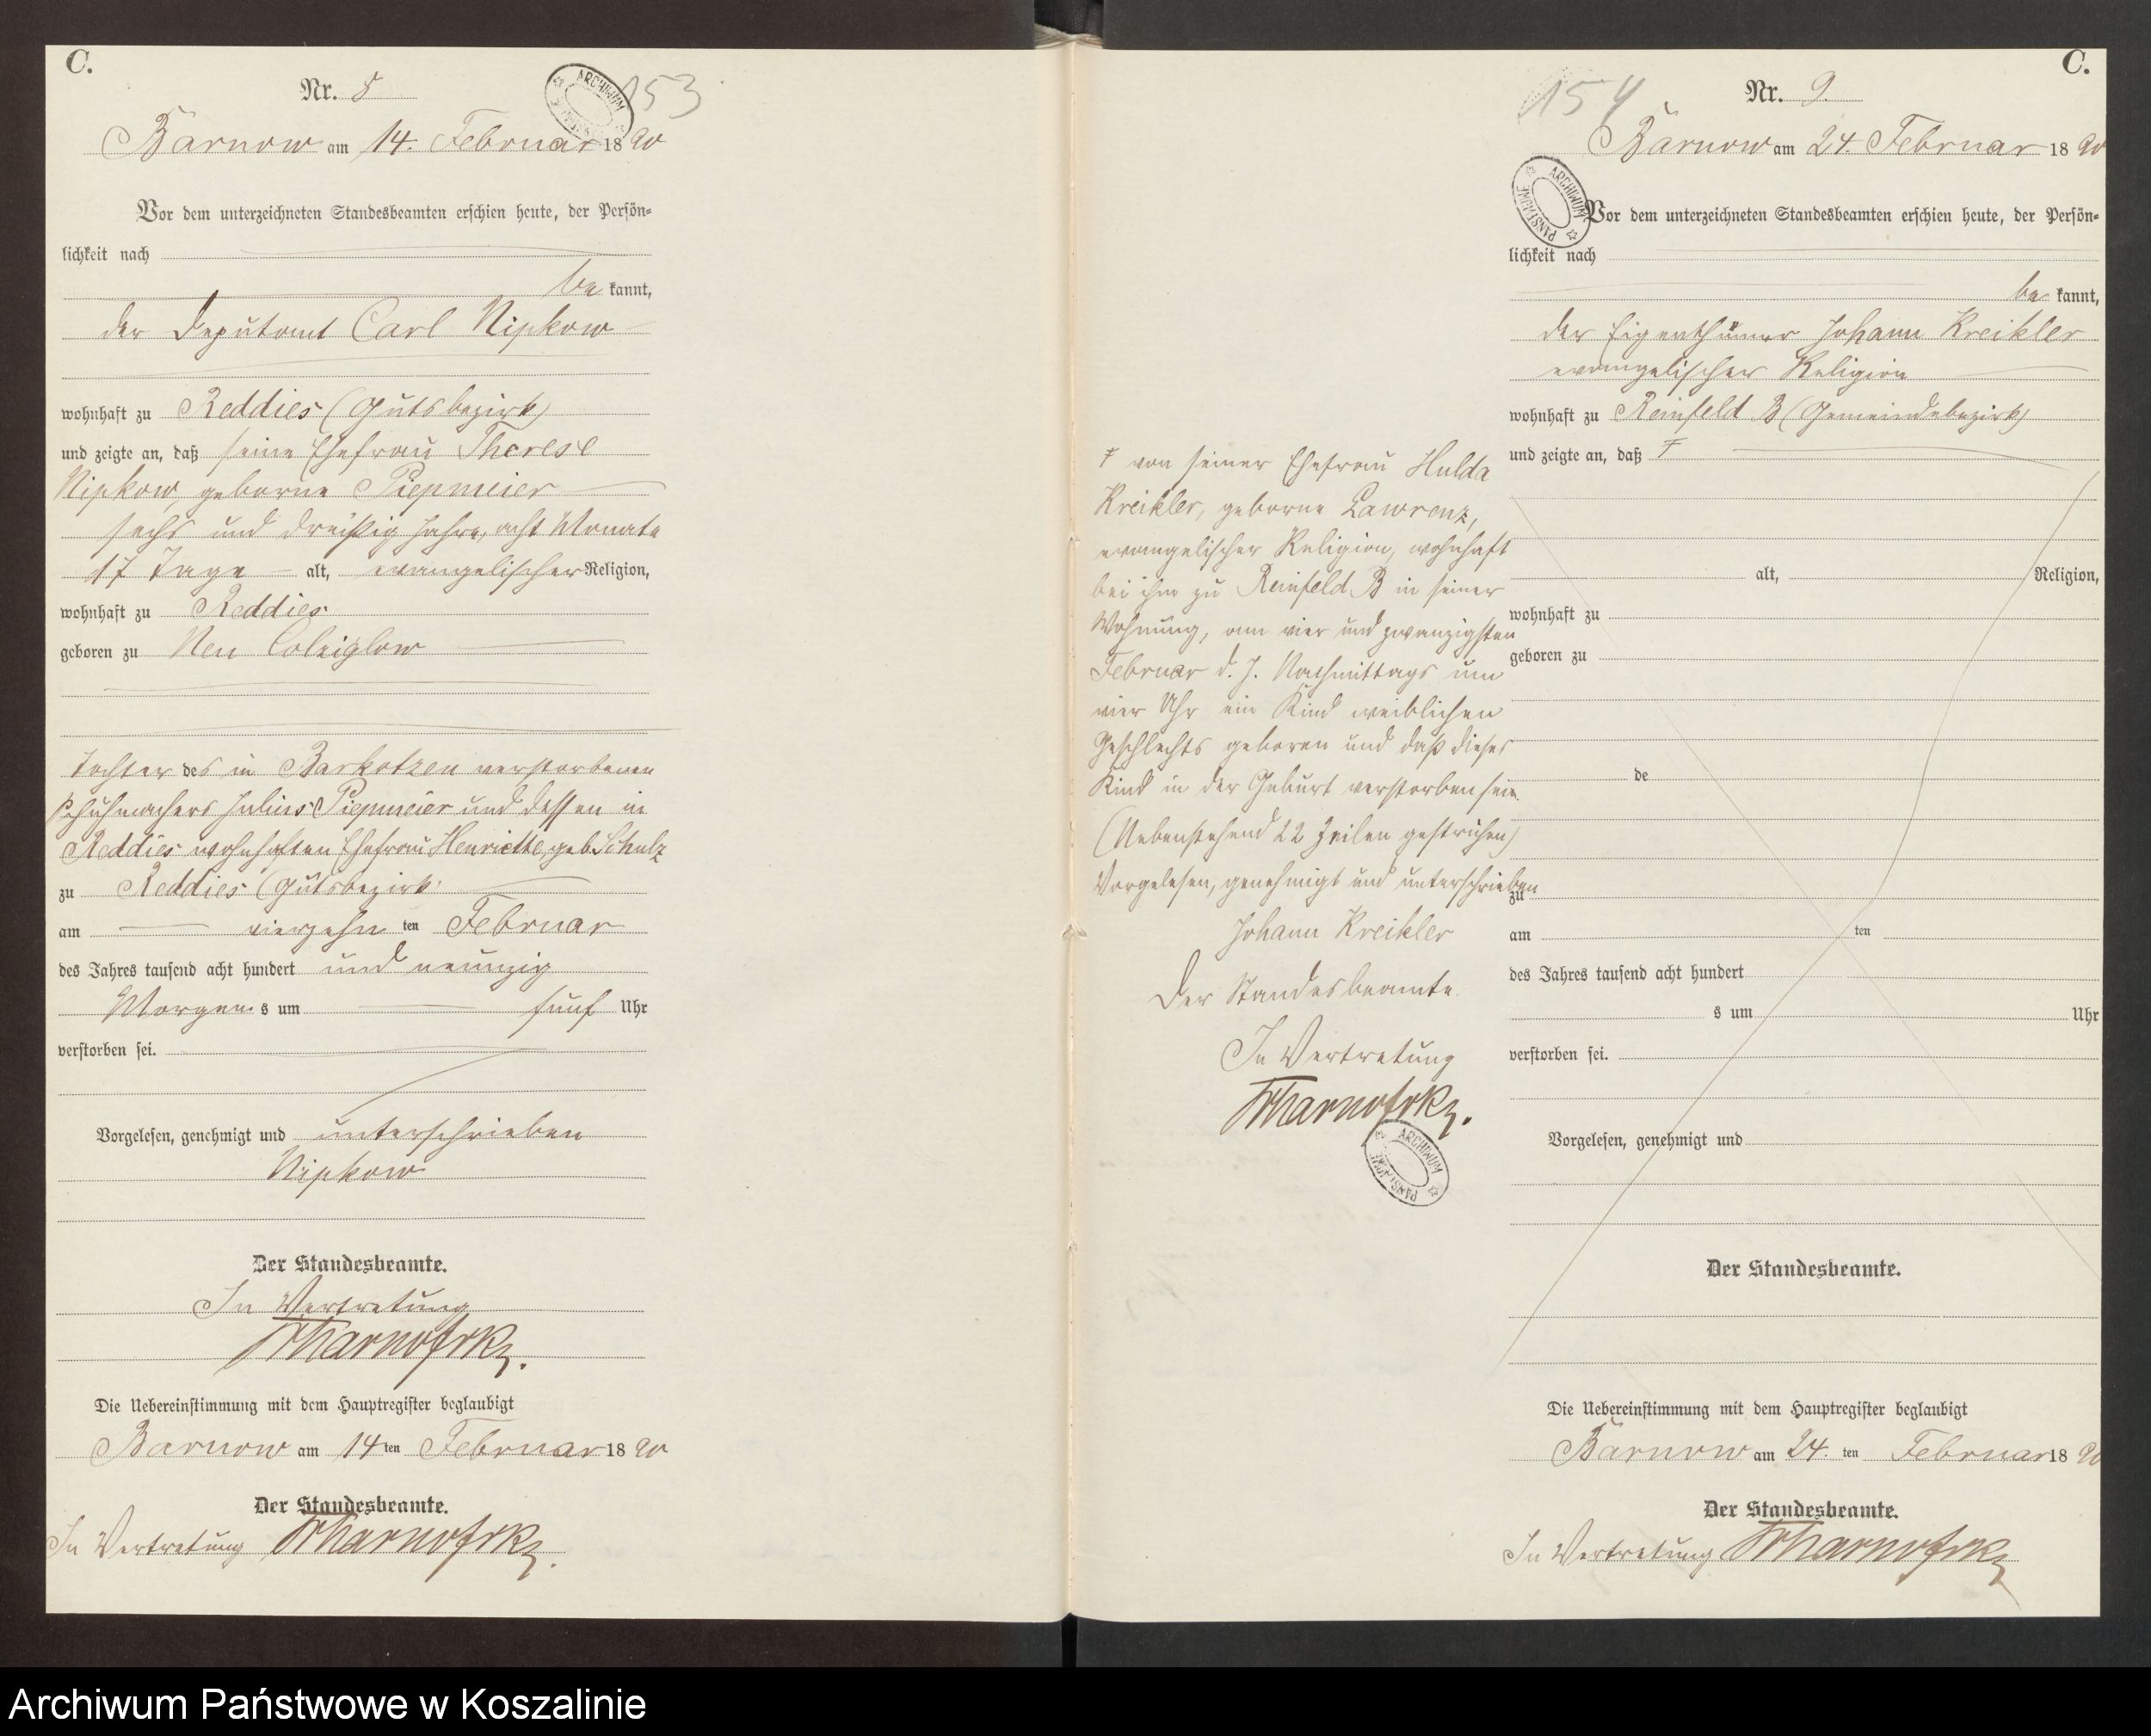 C.
Nr. 8
153
ARCHIWUM
Barnow am 14. Februar 1890
Vor dem unterzeichneten Standesbeamten erschien heute, der Persön=
lichkeit nach
be kannt,
der Deputant Carl Nipkow
wohnhaft zu Reddies (Gutsbezirk)
und zeigte an, daß seine Ehefrau Therese
Nipkow, geborne Piepmeier
sechs und dreißig Jahre, acht Monate
17 Tage alt, evangelischer Religion,
wohnhaft zu Reddies
geboren zu Neu Colziglow
Tochter des in Barkotzen verstorbenen
Schuhmachers Julius Piepmeier und dessen in
Reddies wohnhaften Ehefrau Henriette, geb. Schulz
zu Reddies (Gutsbezirk)
am vierzehn ten Februar
des Jahres tausend acht hundert und neunzig
Morgens um fünf Uhr
verstorben sei.
Vorgelesen, genehmigt und unterschrieben
Nipkow
Der Standesbeamte.
In Vertretung
Die Uebereinstimmung mit dem Hauptregister beglaubigt
Barnow am 14ten Februar 1890
Der Standesbeamte.
In Vertretung
C.
Nr. 9.
154
Barnow am 24. Februar 1890
ARCHIWUM PAŃSTWOWE
Vor dem unterzeichneten Standesbeamten erschien heute, der Persön=
lichkeit nach
be kannt,
der Eigenthümer Johann Kreikler
evangelischer Religion
wohnhaft zu Reinfeld B (Gemeindebezirk)
und zeigte an, daß F
F von seiner Ehefrau Hulda
Kreikler, geborne Lawrenz,
evangelischer Religion, wohnhaft
bei ihm zu Reinfeld B in seiner
Wohnung, am vier und zwanzigsten
Februar d. J. Nachmittags um
vier Uhr ein Kind weiblichen
Geschlechts geboren und daß dieses
Kind in der Geburt verstorben sei.
(Nebenstehend 22 Zeilen gestrichen)
Vorgelesen, genehmigt und unterschrieben
Johann Kreikler
Der Standesbeamte.
In Vertretung
ARCHIWUM
alt, Religion,
wohnhaft zu
geboren zu
de
zu
am ten
des Jahres tausend acht hundert
s um Uhr
verstorben sei.
Vorgelesen, genehmigt und
Der Standesbeamte.
Die Uebereinstimmung mit dem Hauptregister beglaubigt
Barnow am 24. ten Februar 1890
Der Standesbeamte.
In Vertretung
Archiwum Państwowe w Koszalinie